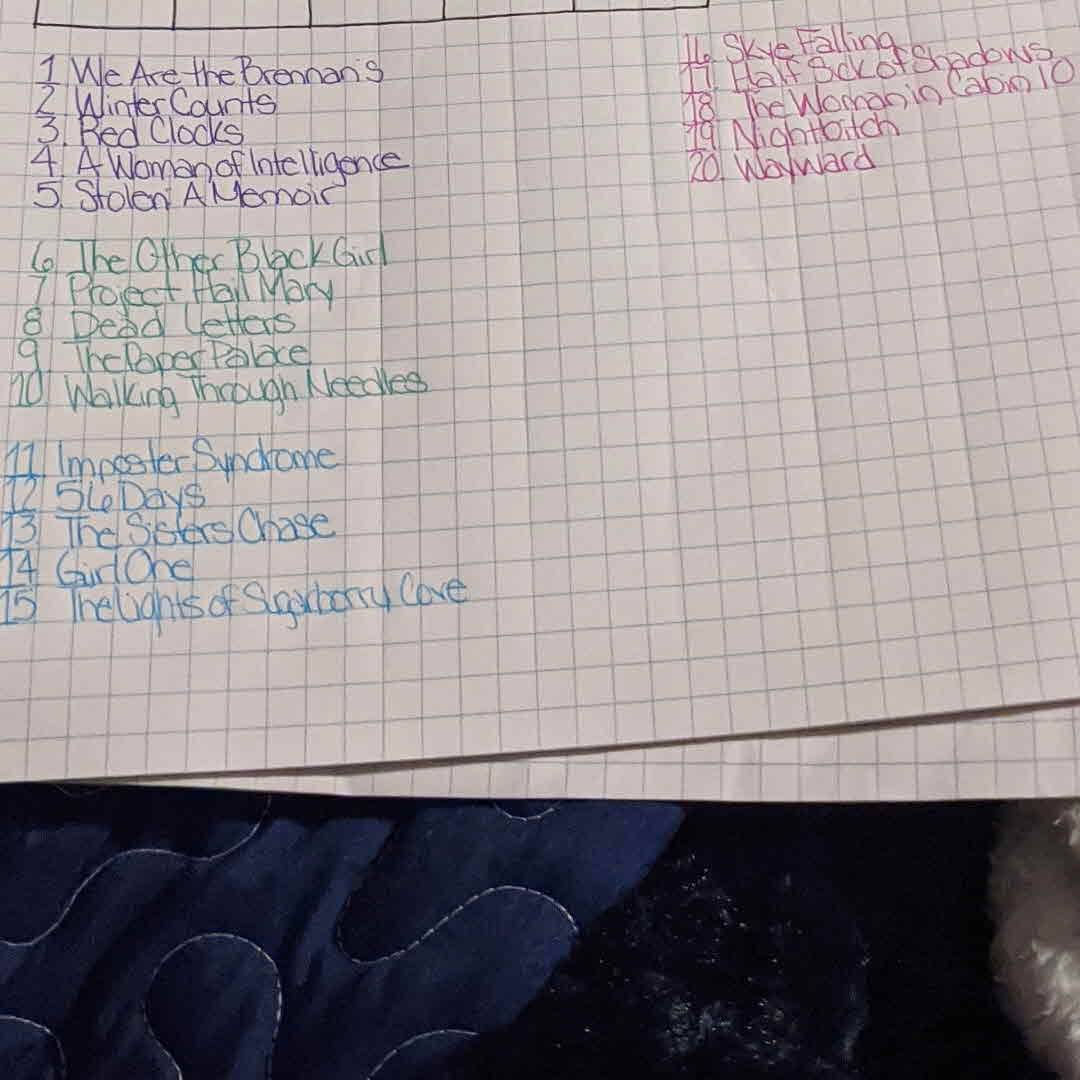 1 We Are the Brennan's
2 Winter Counts
3. Red Clocks
4. A Woman of Intelligence
5. Stolen: A Memoir
6 The Other Black Girl
7 Project Hail Mary
8 Dead Letters
9 The Paper Palace
10 Walking Through Needles
11 Imposter Syndrome
12 56 Days
13 The Sisters Chase
14 Girl One
15 The Lights of Sugarberry Cove
16 Skye Falling
17. Half Sick of Shadows
18 The Woman in Cabin 10
19 Nightbitch
20. Wayward